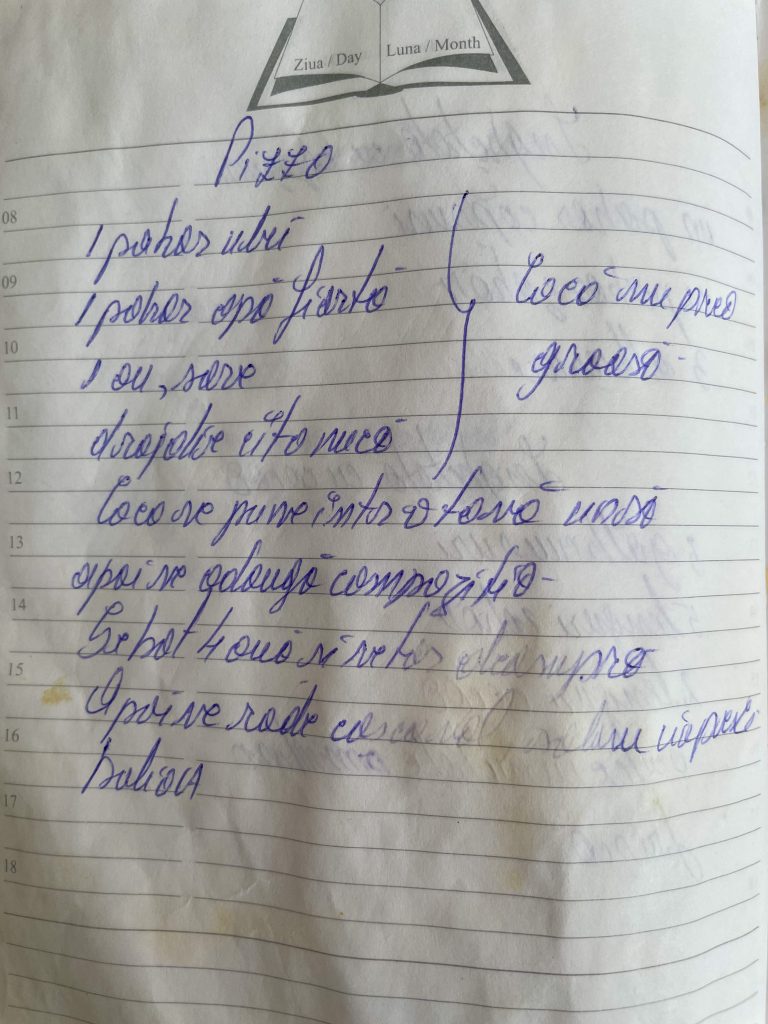 Ziua / Day Luna / Month
Pizza
08
1 pahar ulei
09
1 pahar apă fiartă
Cocă nu prea
10
groasă
1 ou, sare
11
drojdie cît o nucă
12
Coca se pune într o tavă unsă
13
apoi se adaugă compoziția
14
Se bat 4 ouă și se toarnă deasupra
15
Apoi se rade cascaval
16
17
18